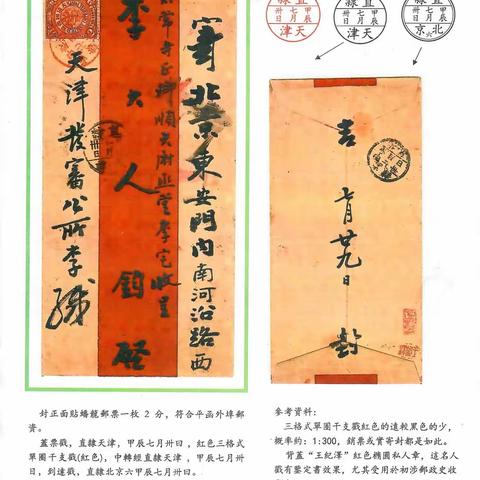 寄北京東安門內南河沿路西
太常寺正卿順天府兆堂李宅收呈
李大人鈞啓
天津發審公所李緘
直隸
甲辰
七月
卅日
天津
直隸
甲辰
七月
卅日
天津
直隸
甲辰
七月
卅日
北京六
吉
七月廿九日
封
封正面貼蟠龍郵票一枚 2 分，符合平函外埠郵
資。
蓋票戳，直隸天津，甲辰七月卅日，紅色三格式
單圈干支戳(紅色)，中轉經直隸天津，甲辰七月卅
日，到達戳，直隸北京六甲辰七月卅日。
參考資料：
三格式單圈干支戳紅色的遠較黑色的少，
概率約：1:300，銷票或實寄封都是如此。
背蓋“王紀澤”紅色橢圓私人章，這名人
戳有鑒定書效果，尤其受用於初涉郵政史收